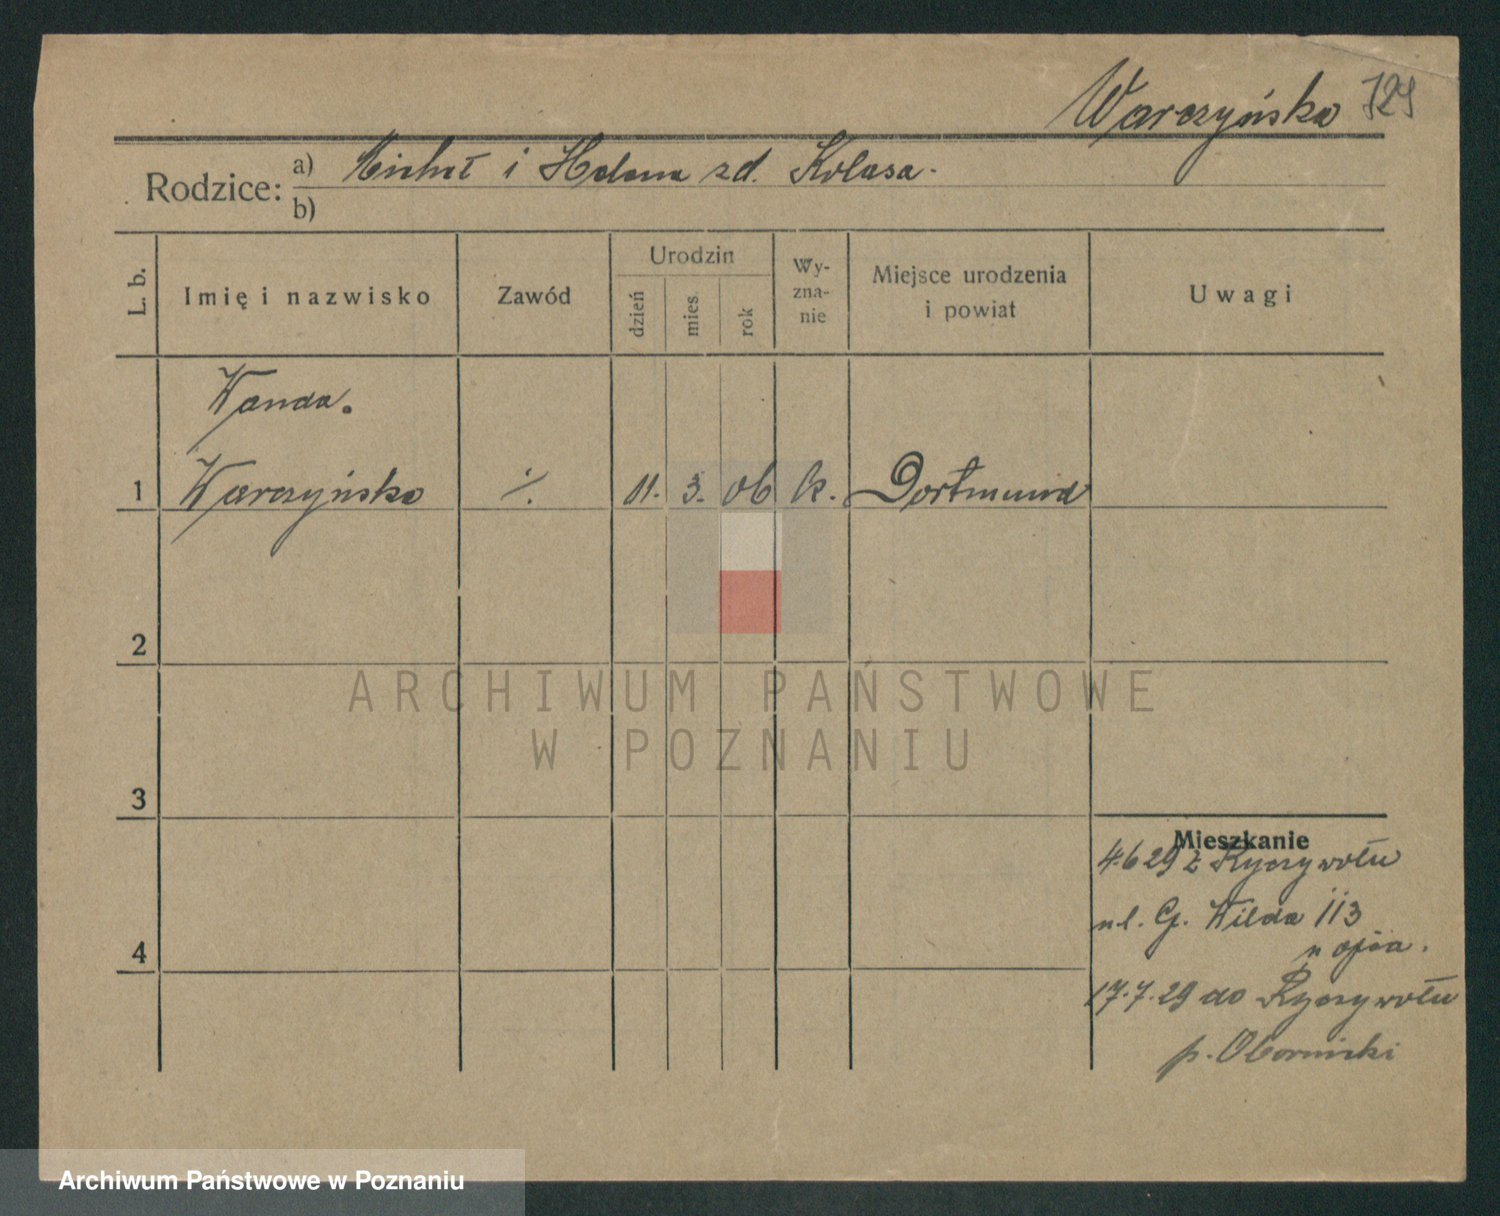 Warczyńska 729
Rodzice: a) Michał i Helena zd. Kolasa.
b)
L. b. Imię i nazwisko Zawód Urodzin dzień mies. rok Wy-zna-nie Miejsce urodzenia i powiat Uwagi
Wanda.
1 Warczyńska ·/. 11. 3. 06 k. Dortmund
2
ARCHIWUM PAŃSTWOWE
W POZNANIU
3
Mieszkanie
4.6 29 z Ryczywołu
ul. G. Wilda 113
u ojca.
4
17.7.29 do Ryczywołu
p. Obornicki
Archiwum Państwowe w Poznaniu